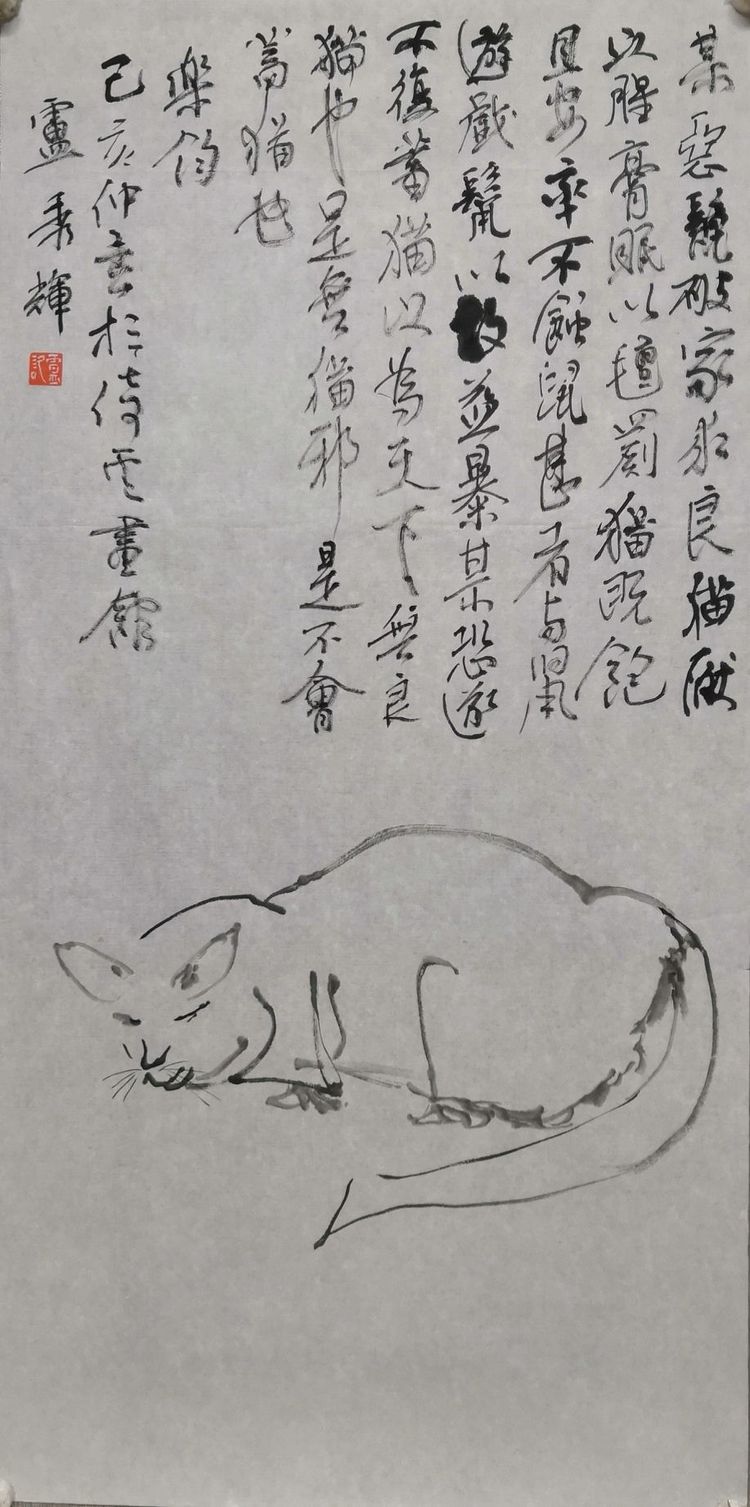 某惡鼠破家求良猫厭
以腥膏眠以氊罽猫既飽
且安率不蝕鼠甚者与鼠
遊戲鼠以故益暴某恐遂
不復蓄猫以為天下無良
猫也是無猫邪是不會
蓄猫也
樂鈞
己亥仲春於倚云畫館
盧秀輝